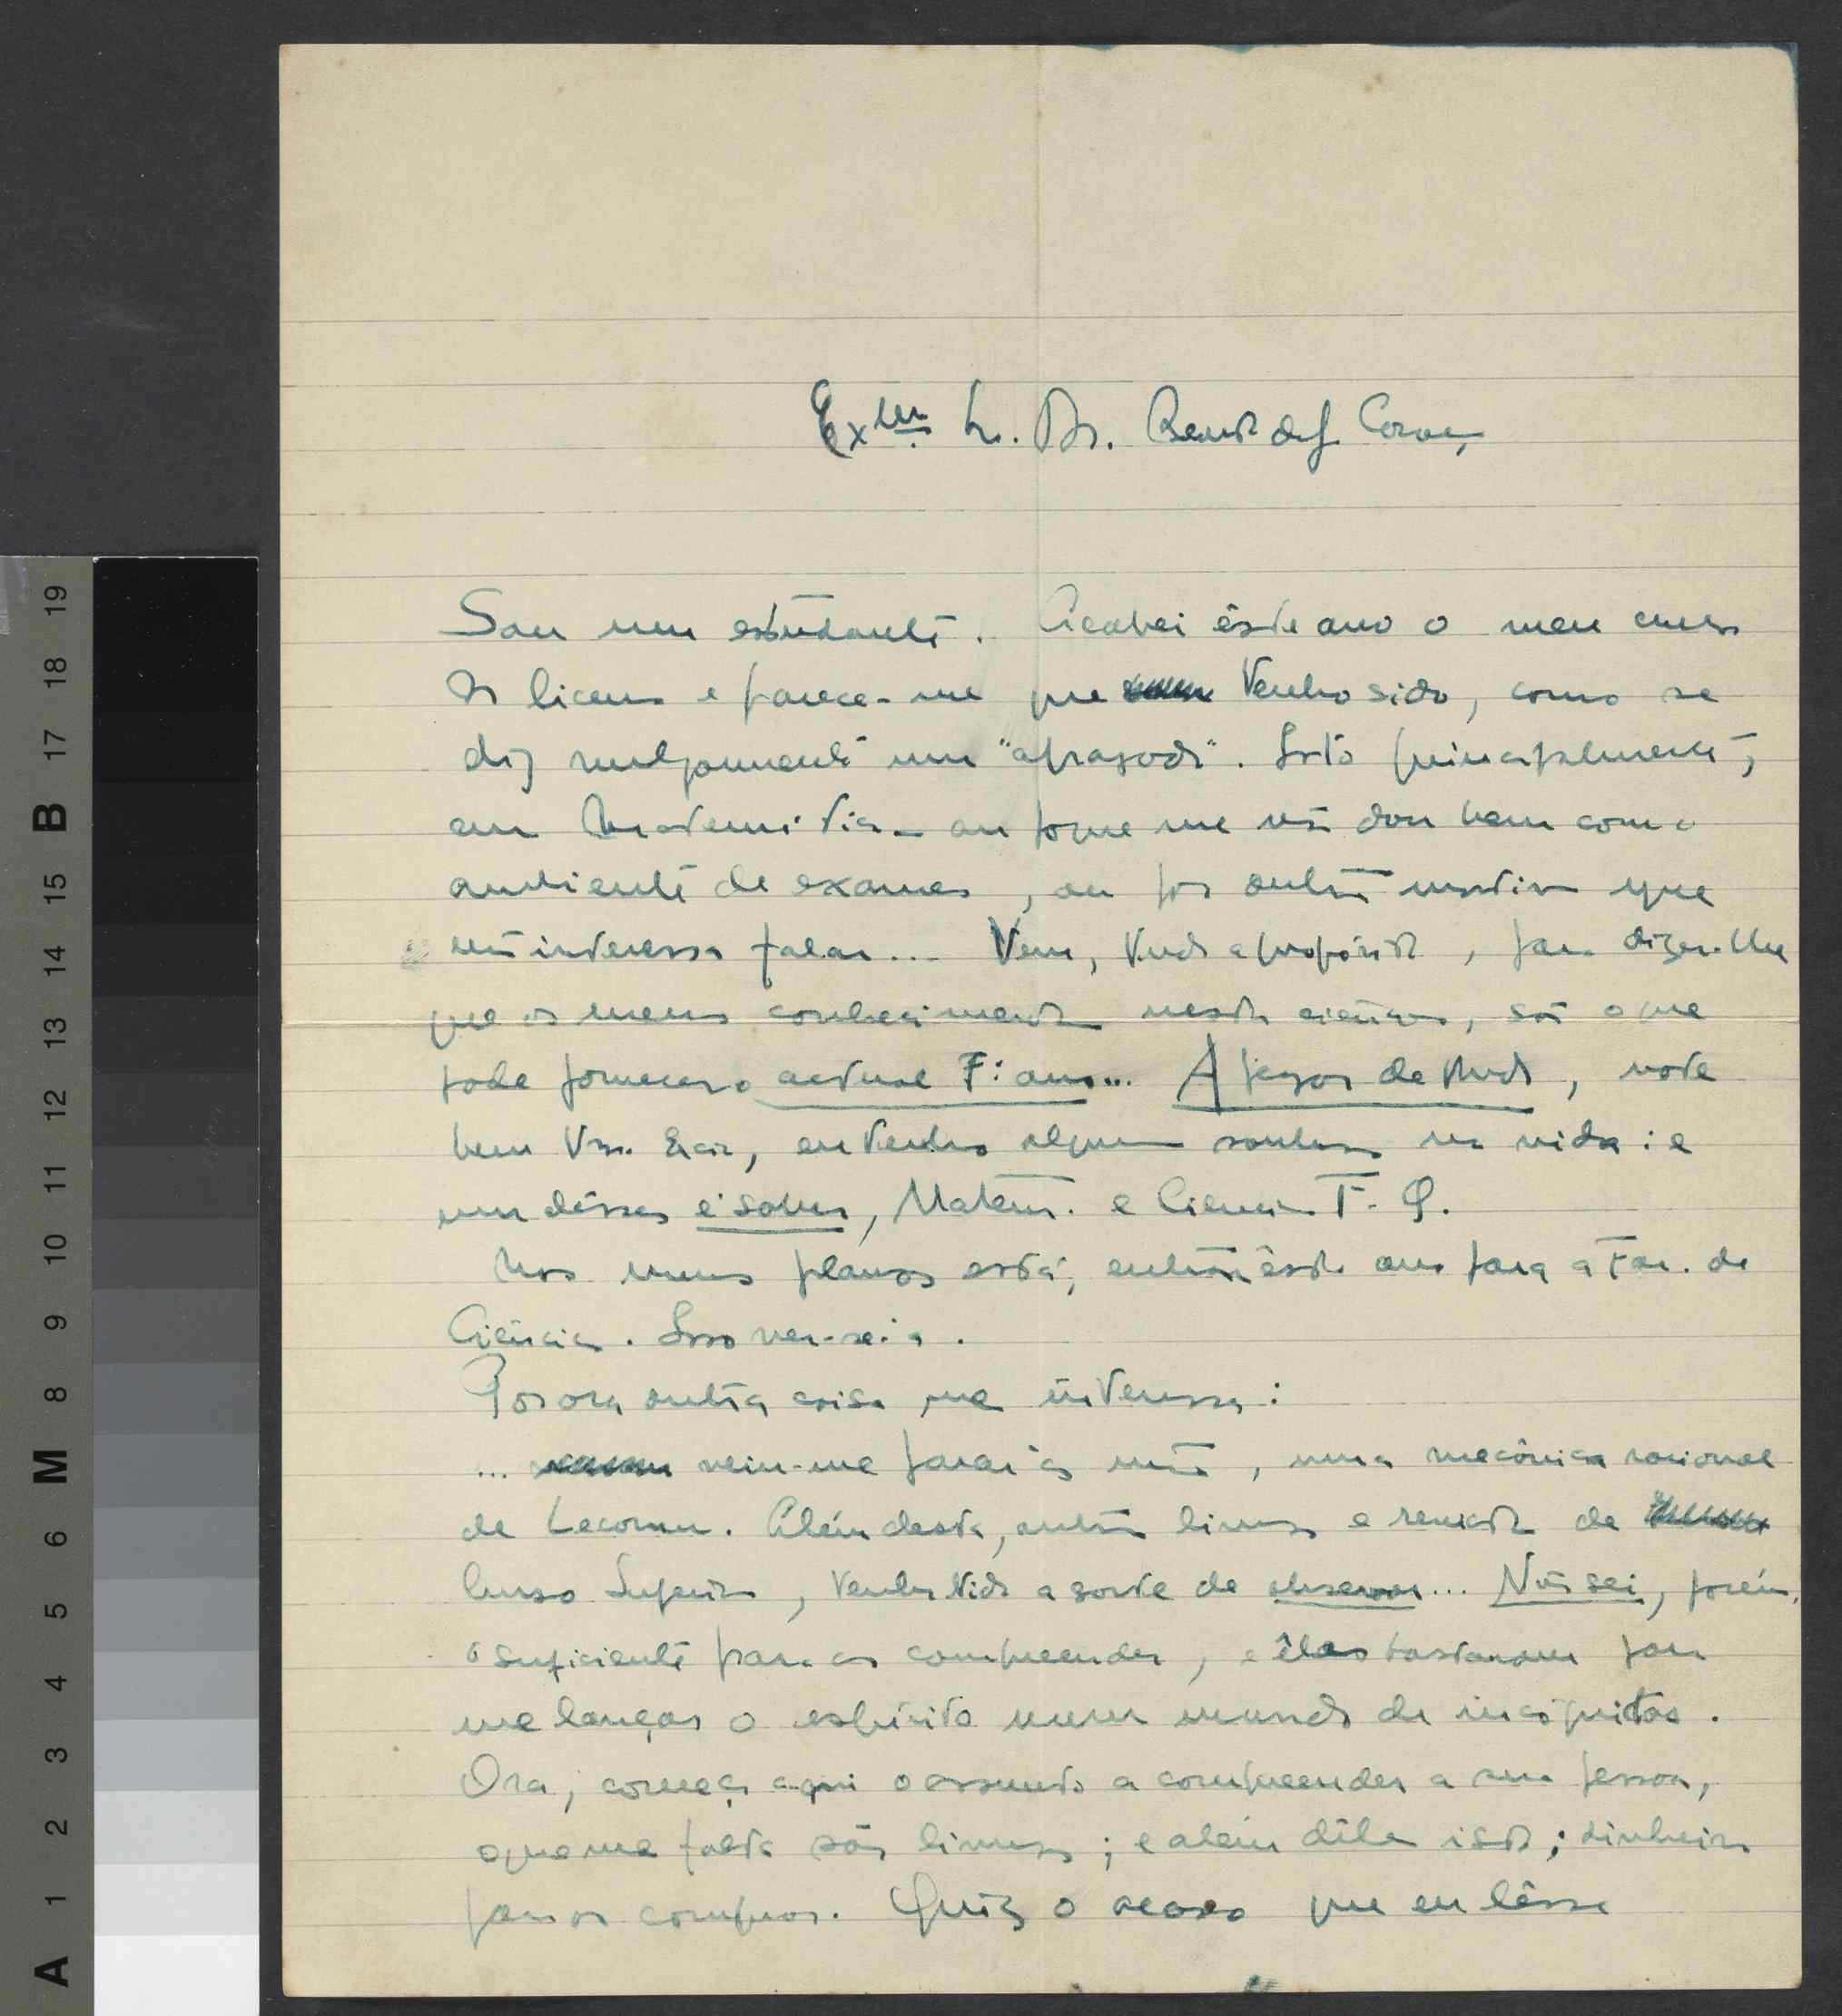 Exmo Sr. Dr. Bento de J. Caraça,
Sou um estudante. Acabei êste ano o meu curso
do liceu e parece-me que tenho sido, como se
diz vulgarmente um "aprazado". Isto principalmente,
em Matemática - ou porque me não dou bem com o
ambiente de exames, ou por outro motivo que
não interessa falar... Vem, tudo a propósito, para dizer-lhe
que os meus conhecimentos nesta ciência, são o que
pode fornecer o actual 7º ano... Apezar de tudo, note
bem Vssa. Excia, eu tenho alguns sonhos na vida: e
um dêsses é saber, Matem. e Ciencias F. Q.
Nos meus planos está, entrar êste ano para a Fac. de
Ciências. Isso ver-se-á.
Por ora outra coisa me interessa:
... veio-me parar às mãos, uma mecânica racional
de Lecornu. Além desta, outros livros e revistas de
Curso Superior, tenho tido a sorte de observar... Não sei, porém,
o suficiente para os compreender, e êles bastaram para
me lançar o espírito num mundo de incógnitas.
Ora, começa aqui o assunto a compreender a sua pessoa,
o que me falta são livros; e além dêle isto; dinheiro
para os comprar. Quiz o acaso que eu lêsse
A 1 2 3 4 5 6 M 8 9 10 11 12 13 14 15 B 17 18 19